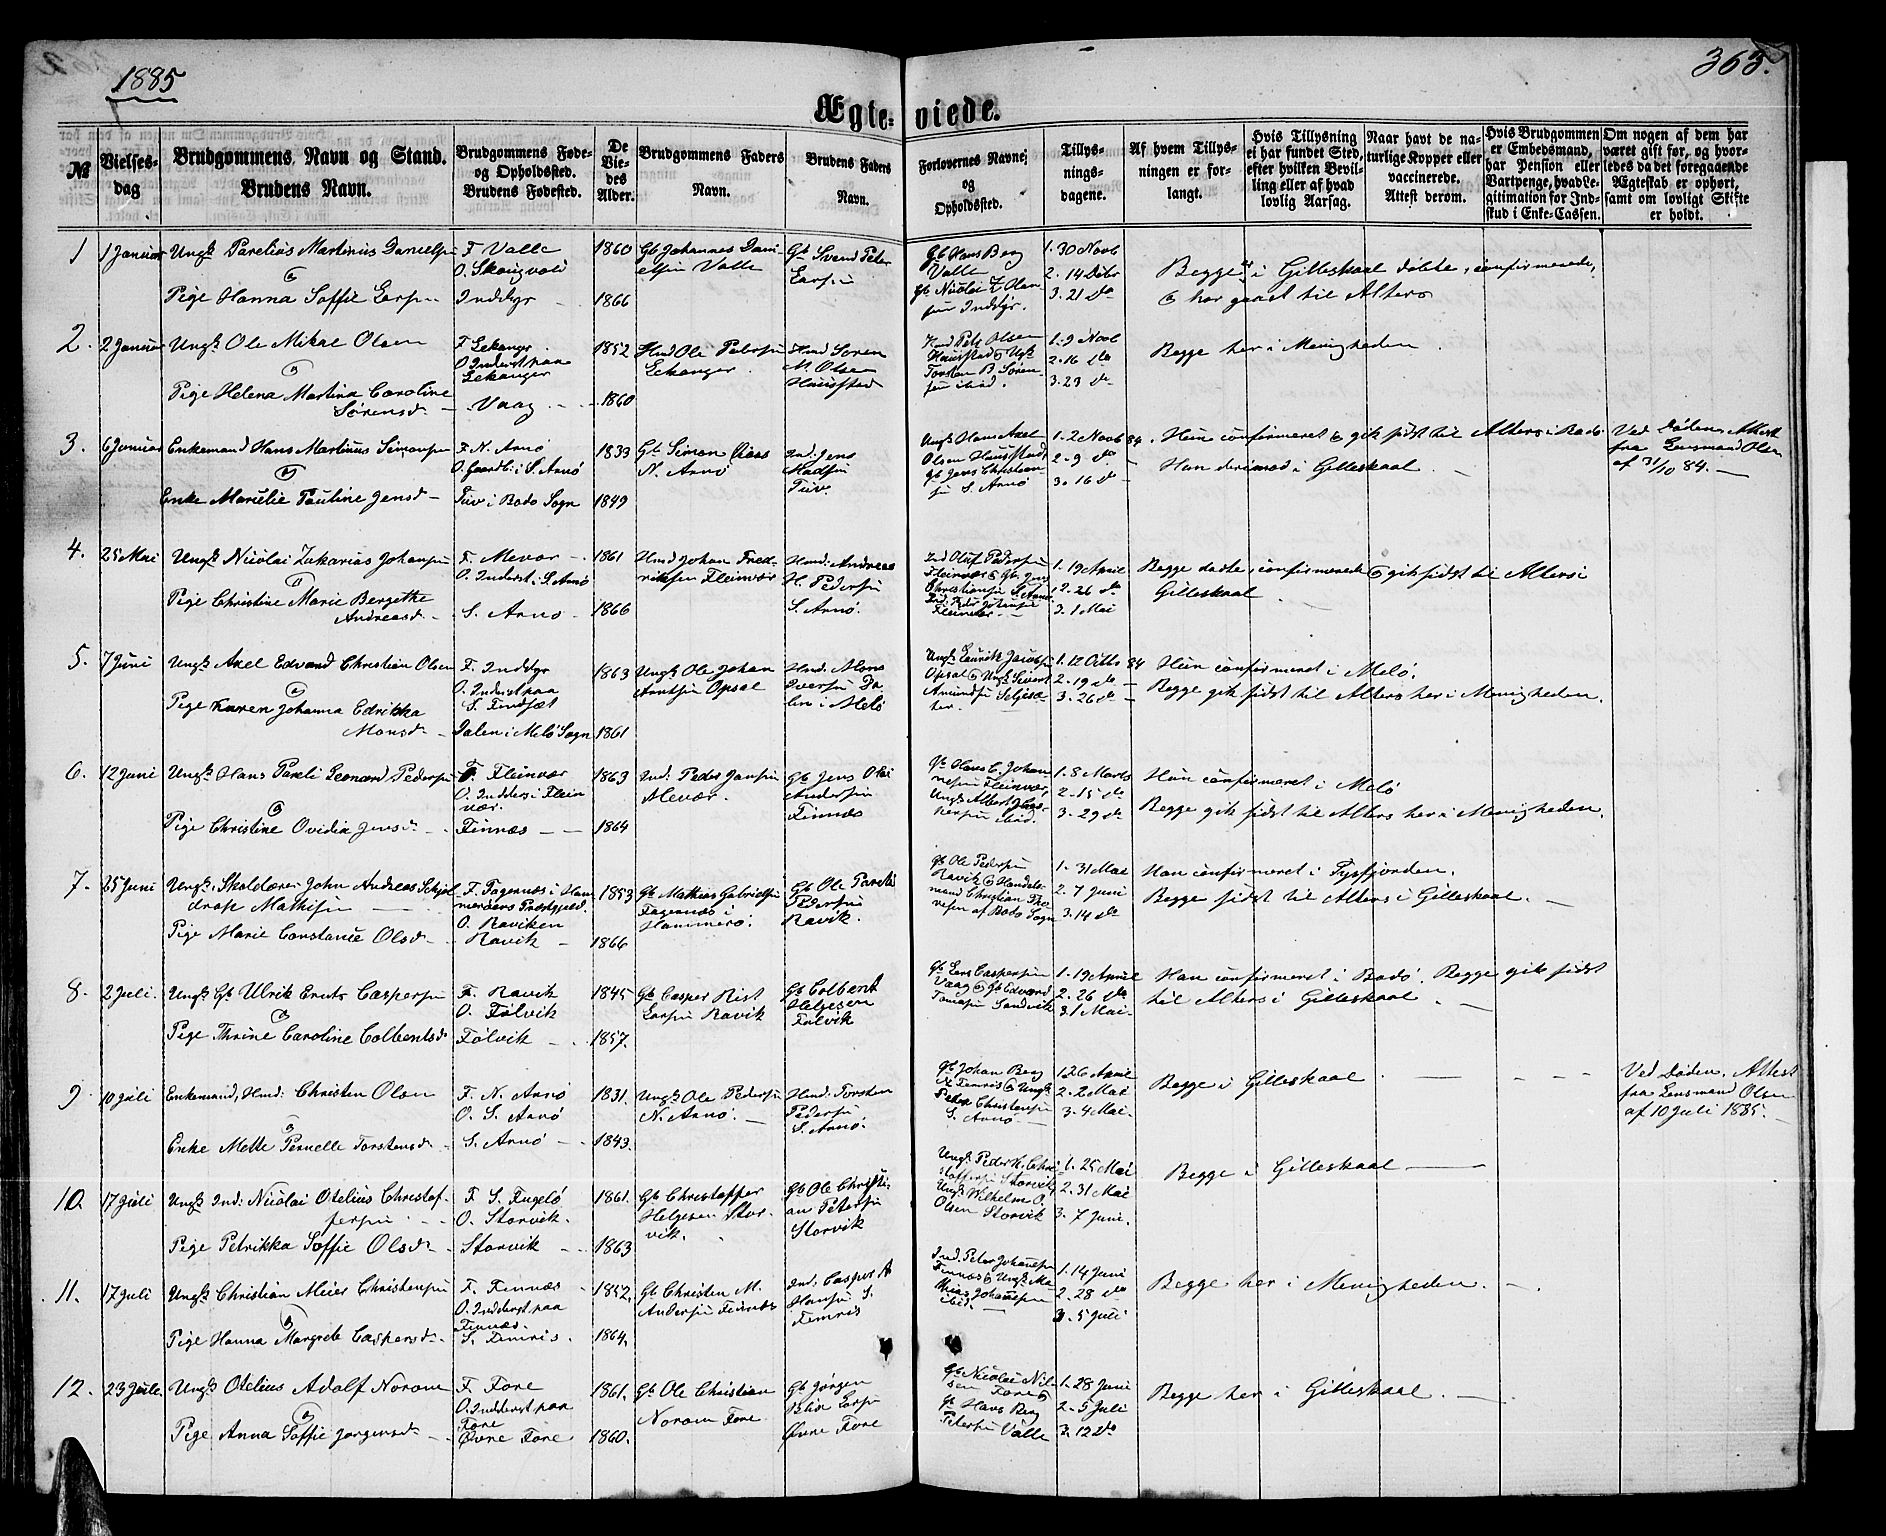 1885
363.
Ægte- viede.
№
Vielses-
dag
Brudgommens Navn og Stand.
Brudens Navn.
Brudgommens Føde-
og Opholdssted.
Brudens Fødested.
De
Vie-
des
Alder.
Brudgommens Faders
Navn.
Brudens Faders
Navn.
Forlovernes Navne,
og
Opholdssted.
Tillys-
nings-
dagene.
Af hvem Tillys-
ningen er for-
langt.
Hvis Tillysning
ei har fundet Sted,
efter hvilken Bevil-
ling eller af hvad
lovlig Aarsag.
Naar havt de na-
turlige Kopper eller
vaccinerede.
Attest derom.
Hvis Brudgommen
er Embedsmand,
har Pension eller
Vartpenge, hvad Le-
gitimation for Ind-
skud i Enke-Cassen.
Om nogen af dem har
været gift før, og hvor-
ledes da det foregaaende
Ægteskab er ophørt,
samt om lovligt Skifte
er holdt.
1
1 Januar
Ungk Parelius Martinus Danielsen
Pige Hanna Soffie Larsen
F. Valle
O. Skaugvold
Inddyr
1860
1866
Gb Johannes Dani-
elsen Valle
Gb Svend Peter
Larsen
Gb Hans Berg
Valle
Gb Nicolai Z Olen-
sen Inddyr.
1. 30 Novb
2. 14 Decbr
3. 21 do
Begge i Gilleskaal døbte, confirmerede,
og har gaaet til Alters
2.
2 Januar
Ungk Ole Mikal Olsen
Pige Helena Martina Caroline
Sørensd
F Lekanger
O Inderst paa
Lekanger
Vaag
1852
1860
Hmd Ole Pedersen
Lekanger.
Hmd Søren
M. Olsen
Haugstad
Hmd Petr Olsen
Haugstad og Ungk
Torsten B. Søren-
sen ibid.
1. 9 Novb
2. 16 do
3. 23 do
Begge her i Menigheden
3.
6 Januar
Enkemand Hans Martinus Simonsen
Enke Marelie Pauline Jensd
F. N. Arnø
O. Gaardb. i S. Arnø
Tuv i Bodø Sogn
1833
1849
Gb Simon Claas
N. Arnø
Ind. Jens
Madsen
Tuv.
Ungk Hans Axel
Olsen Haugstad,
Gb Jens Christian-
sen S. Arnø
1. 2 Novb 84.
2. 9 do
3. 16 do
Hun confirmeret og gik sidst til Alters i Bodø
Han derimod i Gilleskaal
Ved Døden, Attest
fra Lensmand Olsen
af 31/10 84.
4.
25 Mai
Ungk Nicolai Zakarias Johansen
Pige Christine Marie Bergethe
Andreasd
F. Mevær
O. Inderst i S. Arnø
S. Arnø
1861
1866
Hmd Johan Fred-
riksen Fleinvær
Hmd. Andreas
H. Pedersen
S. Arnø.
Ind Oluf Pedersen
Fleinvær og Gb. Jens
Christiansen S. Arnø
Ind. Peder Johansen
Fleinvær
1. 19 April
2. 26 do
3. 1 Mai
Begge døbte, confirmerede og gik sidst til Alters i
Gilleskaal
5.
7 Juni
Ungk Axel Edvard Christian Olsen
Pige Karen Johanna Edrikka
Monsd
F. Inddyr
O. Inderst paa
S. Findset
Dalen i Melø Sogn
1863
1861
Ungk Ole Johan
Arntsen Opsal
Hmd. Mons
Iversen Da-
len i Melø
Ungk Laurik Jacobsen
Opsal og Ungk Sivert
Amundsen Seljesæ-
ter.
1. 12 Octb 84
2. 19 do
3. 26 do
Hun confirmeret i Melø.
Begge gik sidst til Alters her i Menigheden.
6.
12 Juni
Ungk Hans Pareli Leonard Pedersen
Pige Christine Ovidia Jensd
F. Fleinvær
O. Indderst i Flein
vær.
Finnæs
1863
1864
Ind. Peder Jansen
Mevær.
Gb Jens Olai
Andersen
Finnæs
Gb Hans C. Johan-
nesen Fleinvær,
Ungk Albert Jens-
sen ibid.
1. 8 Marts
2. 15 do
3. 29 do
Hun confirmeret i Melø
Begge gik sidst til Alters her i Menigheden.
7.
25 Juni
Ungk. Skolelærer John Andreas Schjel
drop Mathisen
Pige Marie Constance Olsd
F. Fagernæs i Ham-
merøens Præstegjeld.
O. Raviken
Ravik
1853
1866
Gb Mathias Gabrielsen
Fagernæs i
Hammerø.
Gb Ole Pareli
Pedersen
Ravik.
Gb Ole Pedersen
Ravik og Handels-
mand Christian Tho-
resen af Bodø Sogn
1. 31 Mai
2. 7 Juni
3. 14 do
Han confirmeret i Tysfjorden.
Begge sidst til Alters i Gilleskaal.
8.
2 Juli.
Ungk Gb Ulrik Ernts Caspersen
Pige Thrine Caroline Colbentsd
F. Ravik
O. Følvik
Følvik
1845
1857.
Gb Casper Rist
Larsen Ravik
Gb Colbent
Helgesen
Følvik
Gb Lars Caspersen
Vaag og Gb Edvard
Tomasen Sandvik
1. 19 April
2. 26 do
3. 1 Mai.
Han confirmeret i Bodø. Begge gik sidst
til Alters i Gilleskaal
9
10 Juli
Enkemand, Hmd: Christen Olsen
Enke Mette Pernelle Torstensd
F. N. Arnø
O. S. Arnø
S. Arnø
1831.
1843.
Ungk Ole Pedersen
N. Arnø.
Hmd. Torsten
Pedersen
S. Arnø.
Gb Johan Berg
N Femris og Ungk
Peter Christensen
S. Arnø
1. 26 April
2. 2 Mai
3. 4 Mai.
Begge i Gilleskaal
Ved Døden, Attest
fra Lensmand Olsen
af 10 Juli 1885.
10.
17 Juli
Ungk Ind: Nicolai Otelius Christof-
fersen
Pige Petrikka Soffie Olsd
F. S. Fugelø
O. Storvik.
Storvik
1861.
1863
Gb Christoffer
Helgesen Stor-
vik.
Gb Ole Christi-
an Petersen
Storvik
Ungk Peder K. Chri-
stoffersen Storvik,
Ungk Wilhelm O.
Olsen Storvik
1. 25 Mai
2. 31 Mai
3. 7 Juni.
Begge i Gilleskaal
11.
17 Juli
Ungk Christian Meier Christensen
Pige Hanna Margrete Caspersd
F. Finnæs
O. Indderst paa
Finnæs.
S. Femris.
1852.
1864.
Gb Christen M.
Andersen Finnæs
Ind: Casper A
Hansen S.
Femris
Ind. Peter Johansen
Finnæs og Ungk Ma-
thias Johansen
ibid.
1. 14 Juni
2. 28 do
3. 5 Juli
Begge her i Menigheden.
12.
23 Juli.
Ungk Otelius Adolf Norom
Pige Anna Soffie Jørgensd
F. Fore
O. Indderst paa
Fore
Øvre Fore
1861.
1860.
Gb Ole Christian
Norom Fore.
Gb Jørgen
Blix Larsen
Øvre Fore
Gb Nicolai Nil-
sen Fore og
Gb Hans Berg
Petersen Valle
1. 28 Juni
2. 5 Juli
3. 12 do
Begge her i Gilleskaal.